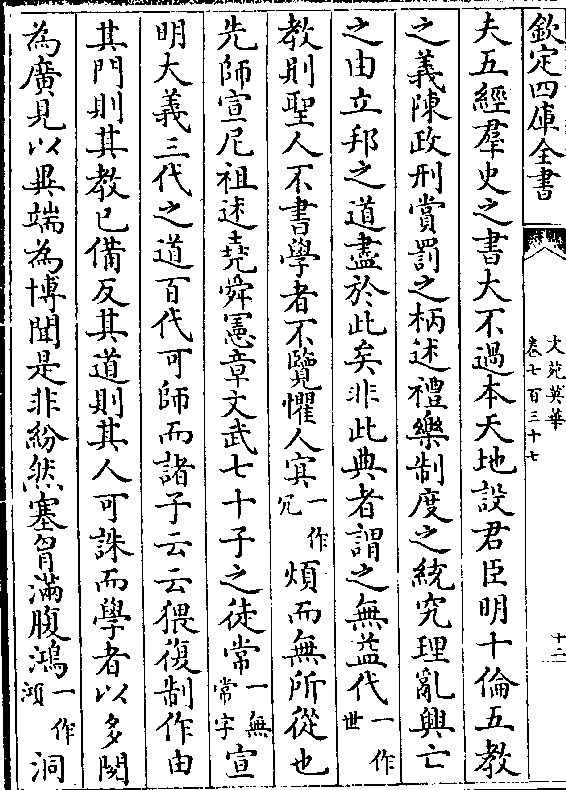 欽定四庫全書
文苑英華
卷七百三十七
十二
夫五經羣史之書大不過本天地設君臣明十倫五教
之義陳政刑賞罰之柄述禮樂制度之統究理亂興亡
之由立邦之道盡於此矣非此典者謂之無益代一作世
教則聖人不書學者不覽懼人冥一作冗煩而無所從也
先師宣尼祖述堯舜憲章文武七十子之徒常一無常字宣
明大義三代之道百代可師而諸子云云猥復制作由
其門則其教已備反其道則其人可誅而學者以多閱
為廣見以異端為博聞是非紛然塞胷滿腹鴻一作澒洞